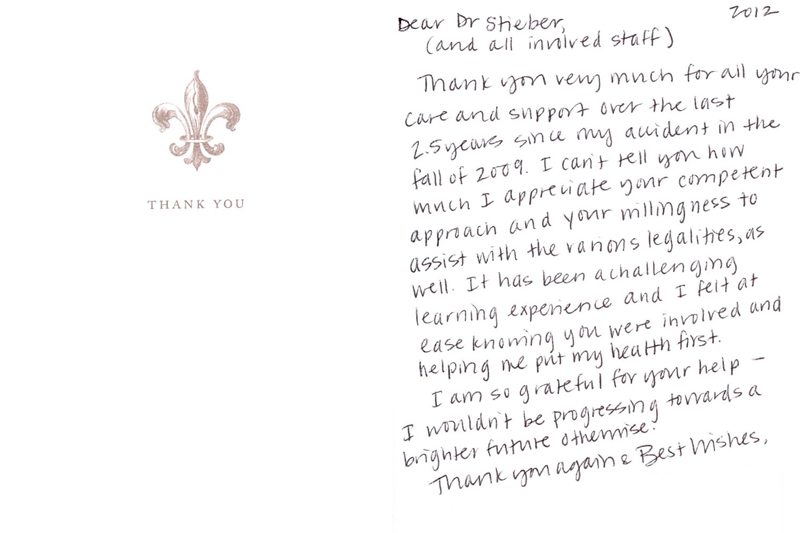 THANK YOU
2012
Dear Dr Stieber,
(and all involved staff)
Thank you very much for all your
care and support over the last
2.5 years since my accident in the
fall of 2009. I can't tell you how
much I appreciate your competent
approach and your willingness to
assist with the various legalities, as
well. It has been a challenging
learning experience and I felt at
ease knowing you were involved and
helping me put my health first.
I am so grateful for your help –
I wouldn't be progressing towards a
brighter future otherwise.
Thank you again & Best Wishes,